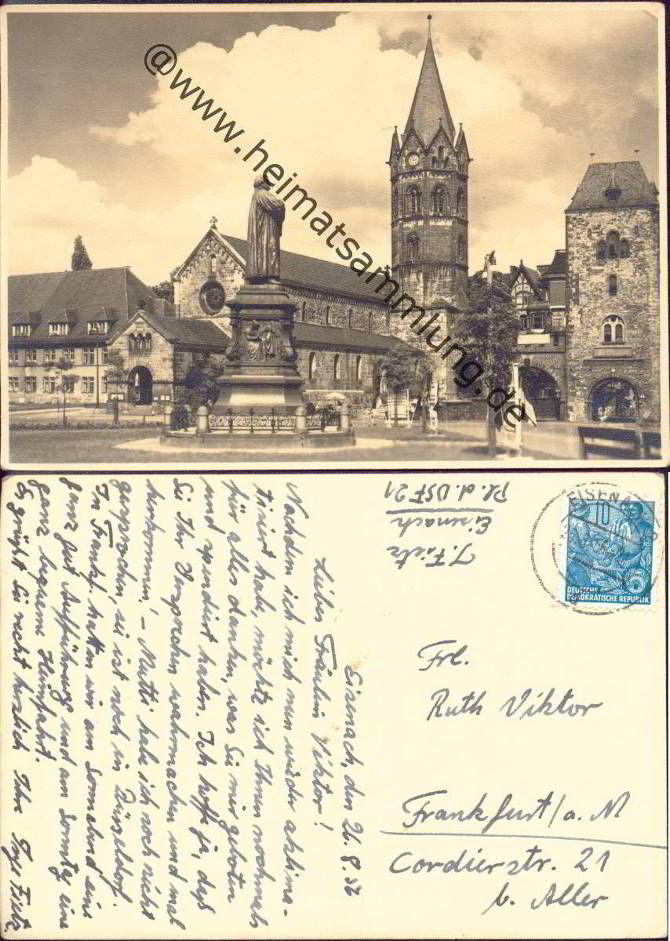 @www.heimatsammlung.de
J. Fietz
Eisenach
Pl. d. DSF 21
EISENA
10
DEUTSCHE
DEMOKRATISCHE REPUBLIK
Frl.
Ruth Viktor
Frankfurt/a. M
Cordierstr. 21
b. Aller
Eisenach, den 26.8.57
Liebes Fräulein Viktor!
Nachdem ich mich nun wieder aklima-
tisiert habe, möchte ich Ihnen nochmals
für alles danken, was Sie mir geboten
und spendiert haben. Ich hoffe ja, daß
Sie Ihr Versprechen wahrmachen und mal
herkommen. – Mutti habe ich noch nicht
gesprochen, sie ist noch in Düsseldorf.
In Frankf. hatten wir am Sonnabend eine
ganz gut Aufführung und am Sonntag eine
ganz bequeme Heimfahrt.
Es grüßt Sie recht herzlich Ihr Fietz